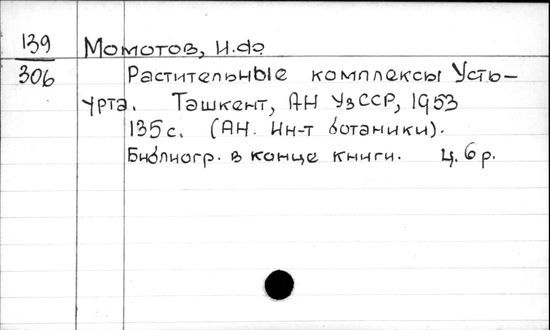 139
306
Момотов, И.Ф.
Растительные комплексы Усть-
урта. Ташкент, АН УзССР, 1953
135 с. (АН. Ин-т ботаники).
Библиогр. в конце книги. Ц. 6 р.